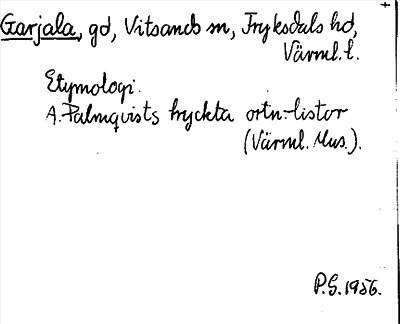 Garjala, gd, Vitsands sn, Fryksdals hd,
Värml. l.
Etymologi.
A. Palmqvists tryckta ortn.-listor
(Värml. Mus.).
P.G. 1956.